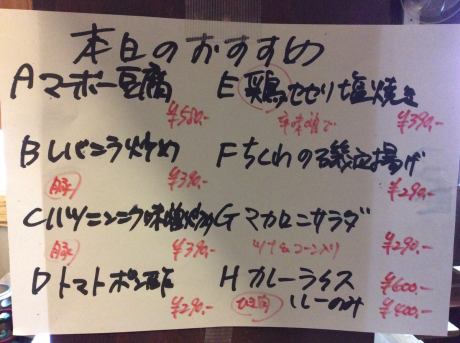 本日のおすすめ
A マーボー豆腐
¥580.-
B レバニラ炒め
豚
¥390.-
C ハツニンニク味噌炒め
豚
¥390.-
D トマトポン酢
¥290.-
E 鶏セセリ塩焼き
辛味噌で
¥390.-
F ちくわの磯辺揚げ
¥290.-
G マカロニサラダ
ツナ&コーン入り
¥290.-
H カレーライス
¥600.-
ひき肉
ルーのみ
¥400.-